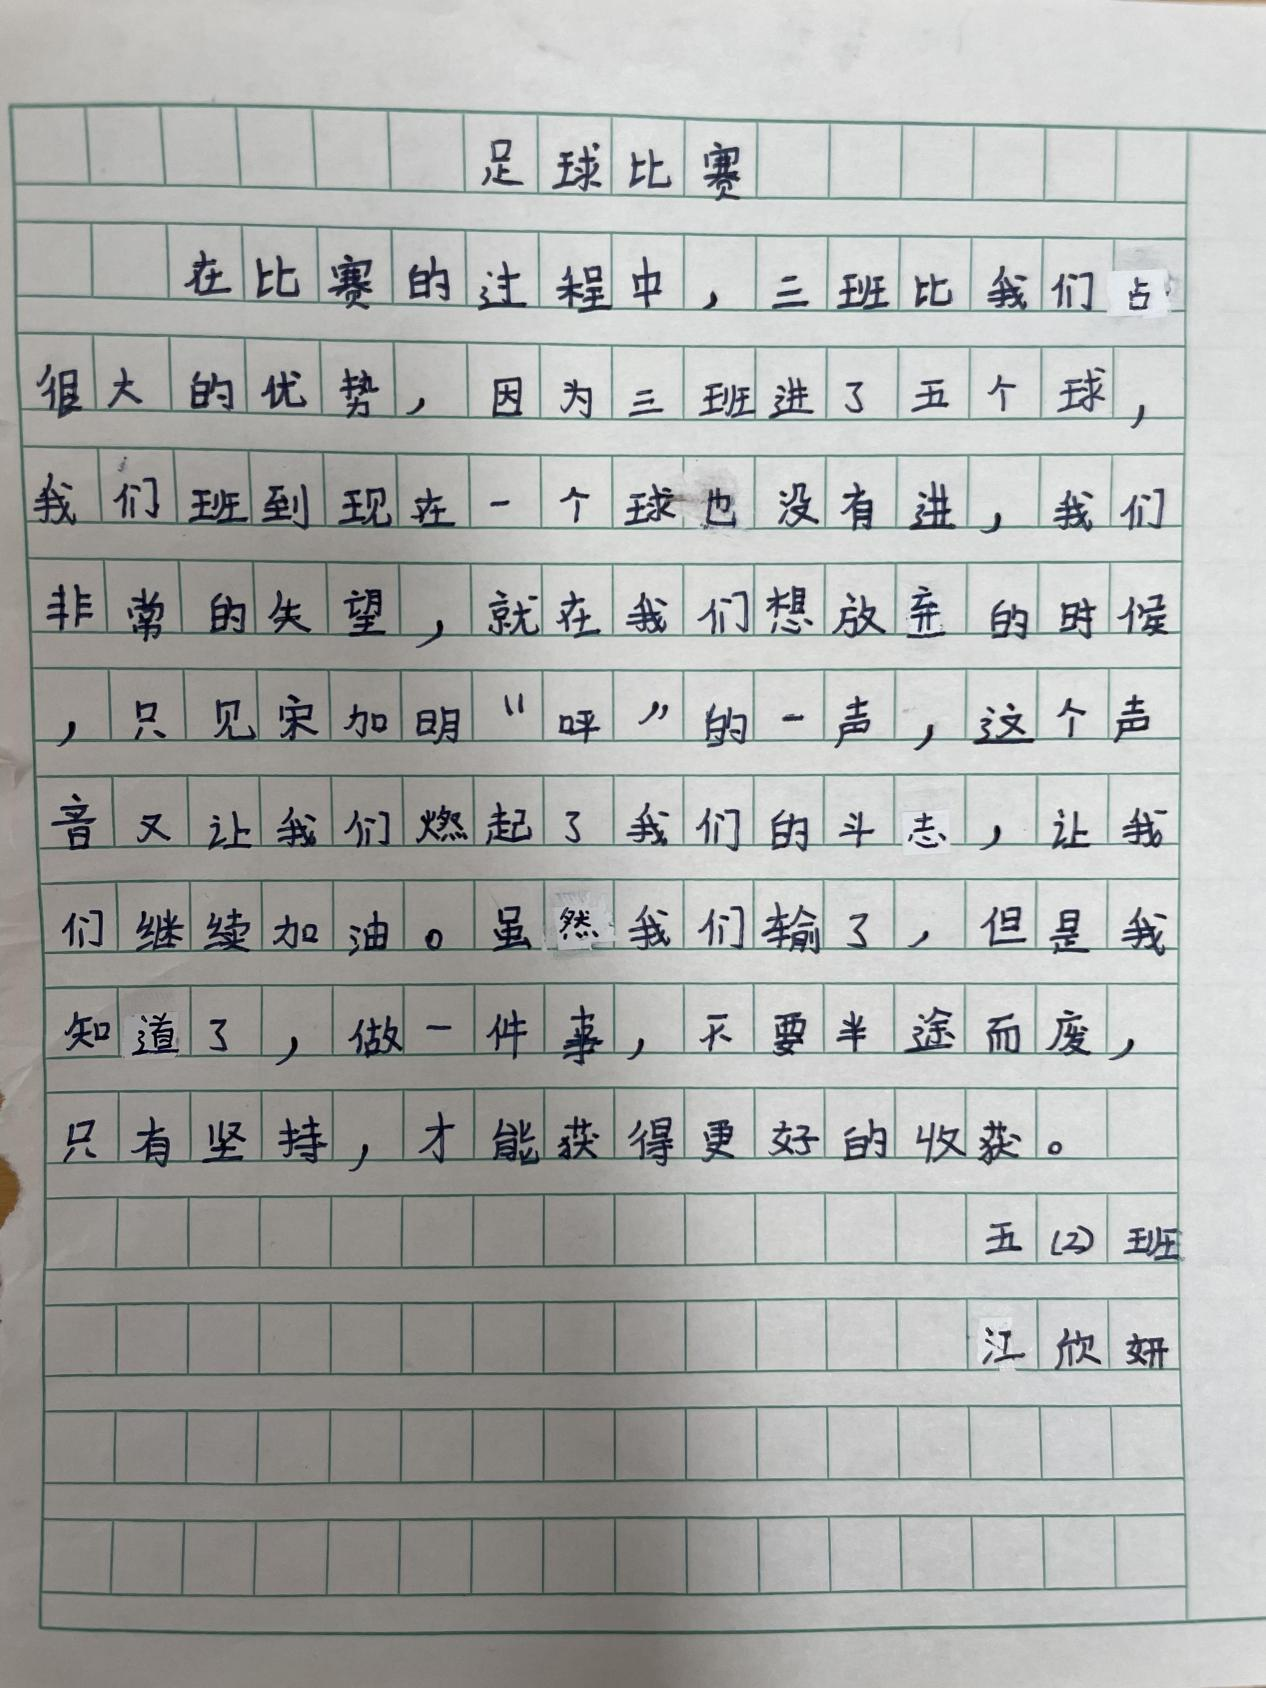 足球比赛
在比赛的过程中，三班比我们占
很大的优势，因为三班进了五个球，
我们班到现在一个球也没有进，我们
非常的失望，就在我们想放弃的时候
，只见宋加明“呯”的一声，这个声
音又让我们燃起了我们的斗志，让我
们继续加油。虽然我们输了，但是我
知道了，做一件事，不要半途而废，
只有坚持，才能获得更好的收获。
五(2)班
江欣妍